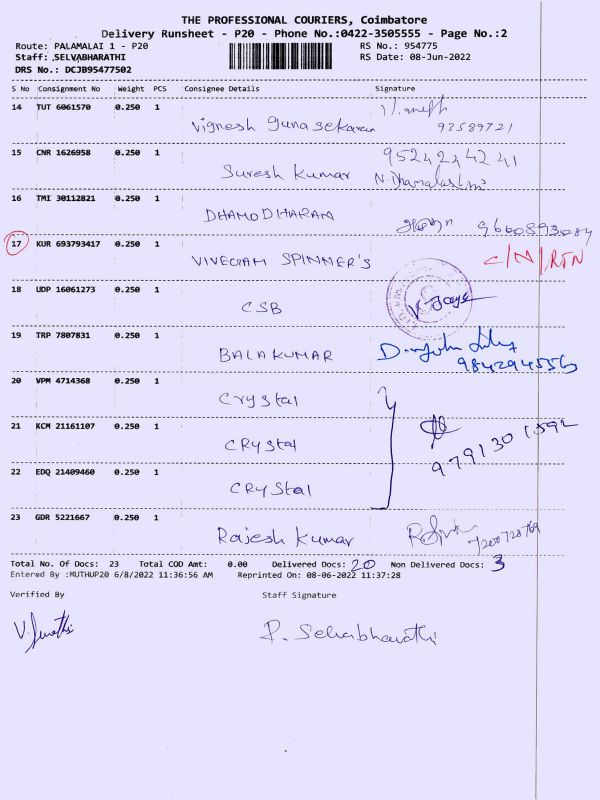 THE PROFESSIONAL COURIERS, Coimbatore
Delivery Runsheet - P20 - Phone No.:0422-3505555 - Page No.:2
Route: PALAMALAI 1 - P20 RS No.: 954775
Staff: SELVABHARATHI RS Date: 08-Jun-2022
DRS No.: DCJB95477502
S No Consignment No Weight PCS Consignee Details Signature
14 TUT 6061570 0.250 1
Vignesh Gunasekaran 93589721
15 CNR 1626958 0.250 1 9524224241
Suresh Kumar
16 TMI 30112821 0.250 1
DHAMODHARAN 9660893084
17 KUR 693793417 0.250 1
VIVEGAM SPINNER'S C/N/RTN
18 UDP 16061273 0.250 1
CSB
19 TRP 7807831 0.250 1
BALAKUMAR 9842945563
20 VPM 4714368 0.250 1
Crystal
21 KCM 21161107 0.250 1
CRystal 9791301592
22 EDQ 21409460 0.250 1
CRystal
23 GDR 5221667 0.250 1
Rajesh Kumar 7200728769
Total No. Of Docs: 23 Total COD Amt: 0.00 Delivered Docs: 20 Non Delivered Docs: 3
Entered By :MUTHUP20 6/8/2022 11:36:56 AM Reprinted On: 08-06-2022 11:37:28
Verified By Staff Signature
P. Selvabharathi